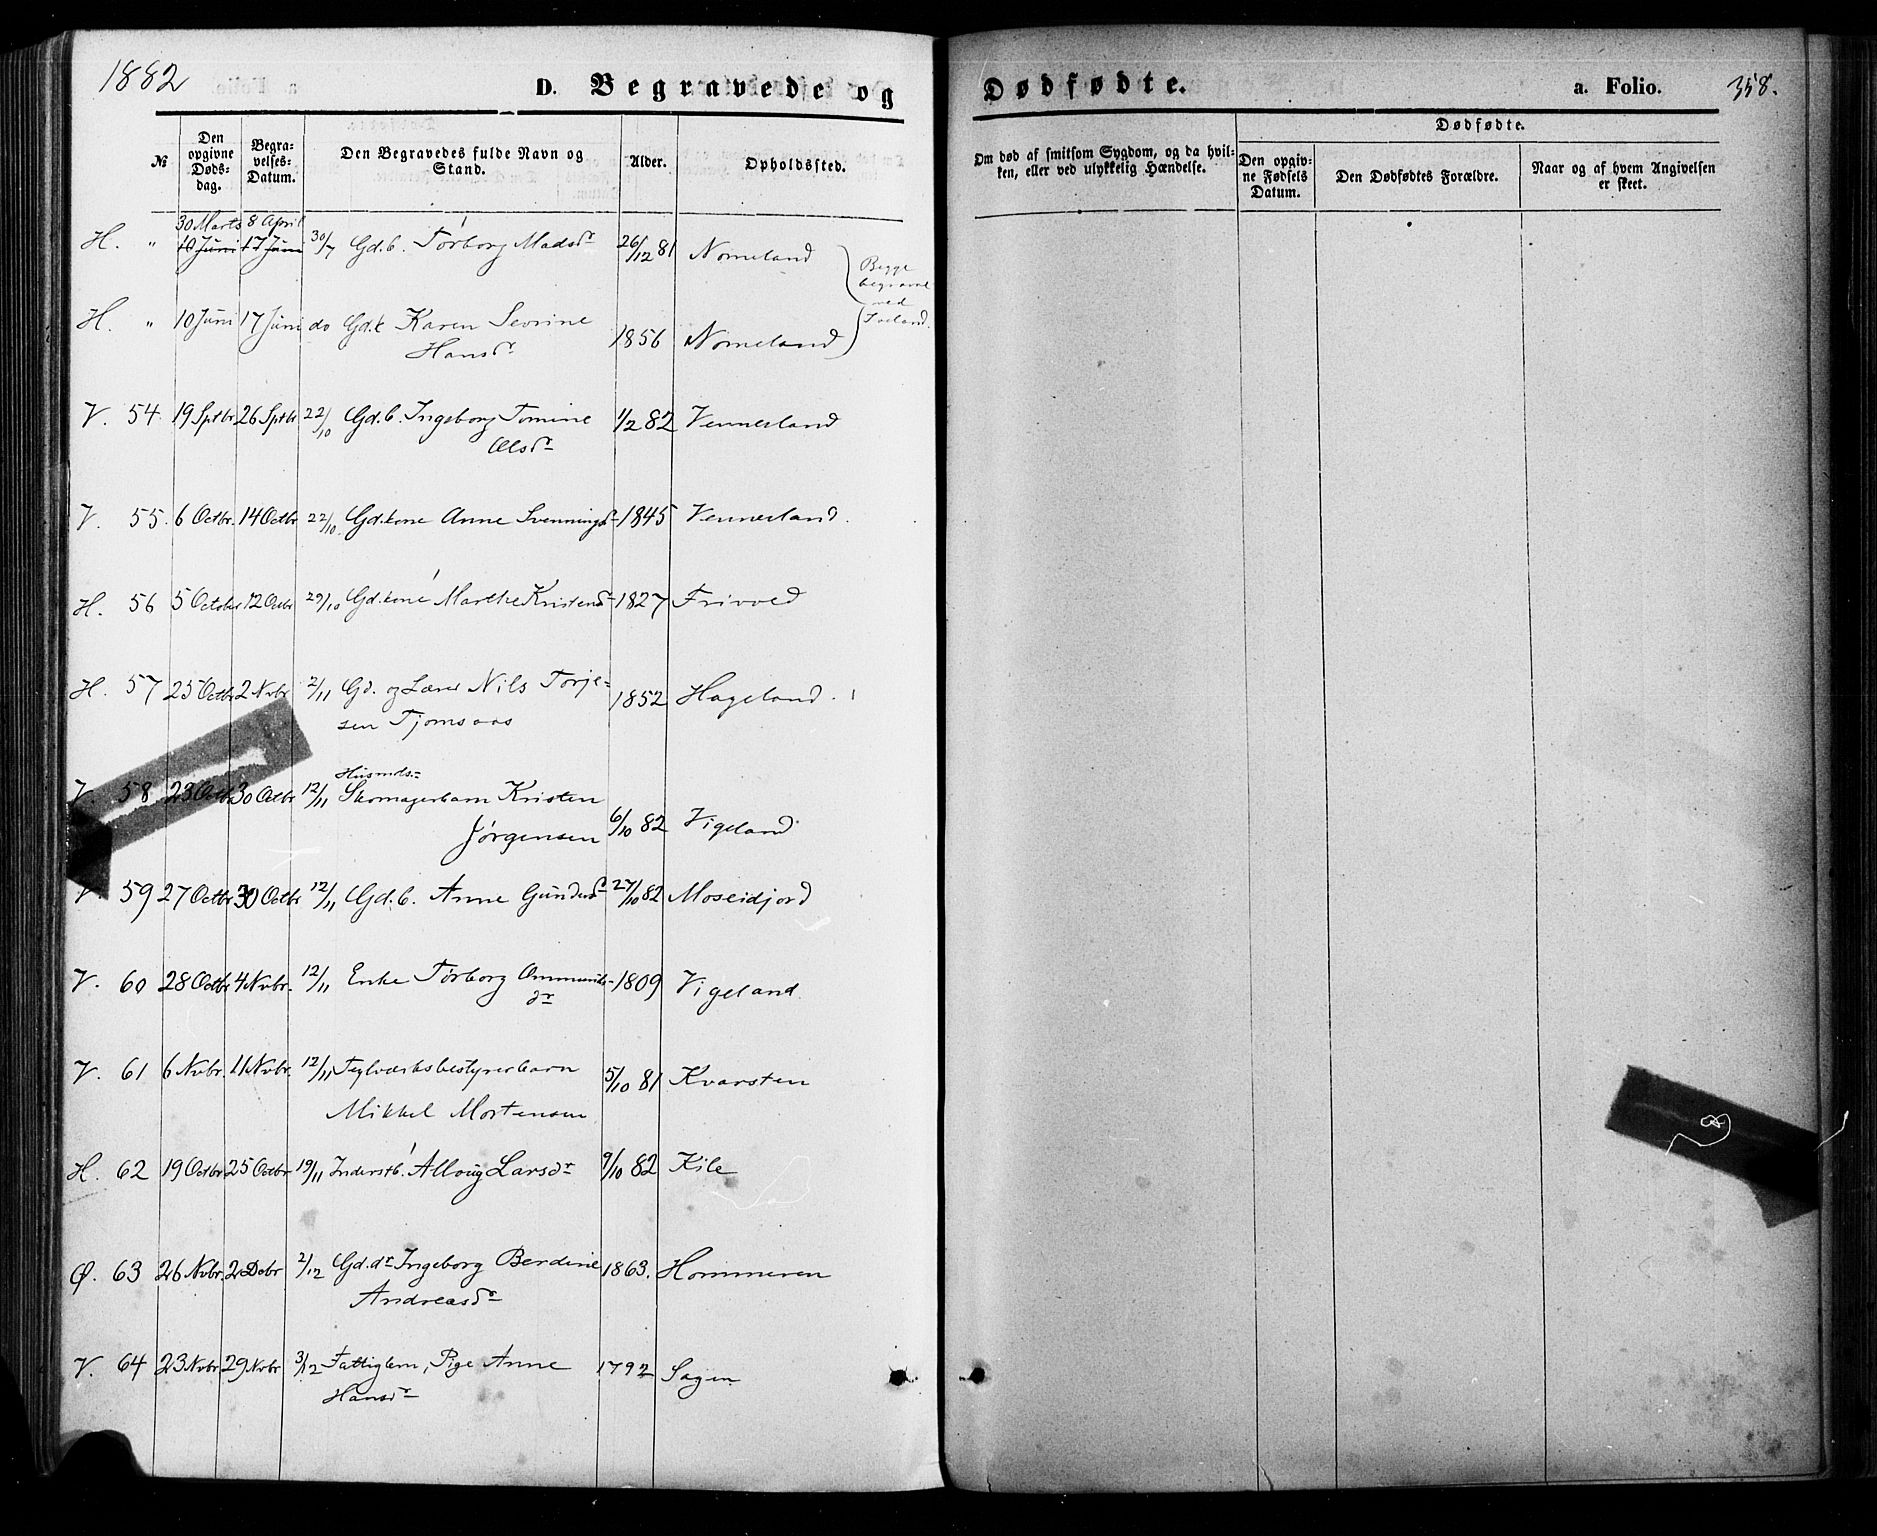 1882
D. Begravede og Dødfødte.
a. Folio. 358.
№
Den opgivne Dødsdag.
Begravelses-Datum.
Den Begravedes fulde Navn og Stand.
Alder.
Opholdssted.
Om død af smitsom Sygdom, og da hvilken, eller ved ulykkelig Hændelse.
Dødfødte.
Den opgivne Fødsels Datum.
Den Dødfødtes Forældre.
Naar og af hvem Angivelsen er skeet.
30 Marts 8 April
H. " 10 Juni 17 Juni 30/7 Gd.b. Tørborg Madsdr 26/12 81 Nomeland
Begge
begravne
ved
H. " 10 Juni 17 Juni do Gd.k Karen Severine
Hansdr 1856 Nomeland
V. 54 19 Sptbr 26 Sptbr 22/10 Gd.b. Ingeborg Tomine
Olsdr 1/2 82 Vennesland
V. 55. 6 Octbr. 14 Octbr 22/10. Gd.kone Anne Svenningsdr 1845 Vennesland.
H. 56 5 October 12 Octbr 29/10 Gd.kone Marthe Kristensdr 1827 Frivold
H. 57 25 Octbr 2 Nvbr 2/11 Gd. og Lærer Nils Torje-
sen Tjomsaas 1852 Hageland.
Husmds.-
V. 58 23 Octbr 30 Octbr 12/11 Skomagerbarn Kristen
Jørgensen 6/10 82 Vigeland
V. 59 27 Octbr 30 Octbr 12/11 Gd.b. Anne Gundersdr 27/10 82 Moseidjord
V. 60 28 Octbr 4 Nvbr. 12/11 Enke Tørborg Ommunds-
dr 1809 Vigeland
V. 61 6 Nvbr. 11 Nvbr. 12/11 Teglværksbestyrerbarn
Mikkel Mortensen 5/10 81 Kvarsten
H. 62 19 Octbr 25 Octbr 19/11 Inderstb. Alloug Larsdr 9/10 82 Kile
Ø. 63 26 Nvbr. 2 Dcbr 2/12 Gd.dr Ingeborg Berdine
Andreasdr 1863. Hommeren
V. 64 23 Nvbr 29 Nvbr 3/12 Fattiglem, Pige Anne
Hansdr 1792 Sagen